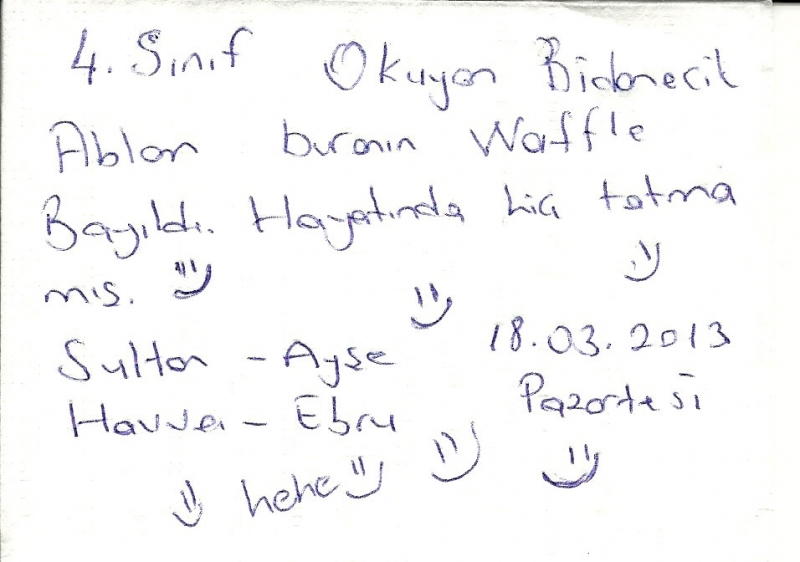 4. Sınıf Okuyan Bidonecik
Ablan buranın Waffle
Bayıldı. Hayatında hiç tatma
mış.
Sultan - Ayşe 18.03.2013
Havva - Ebru Pazartesi
hehe